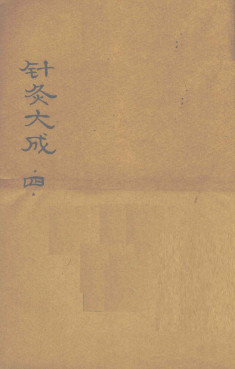 针灸大成·四·